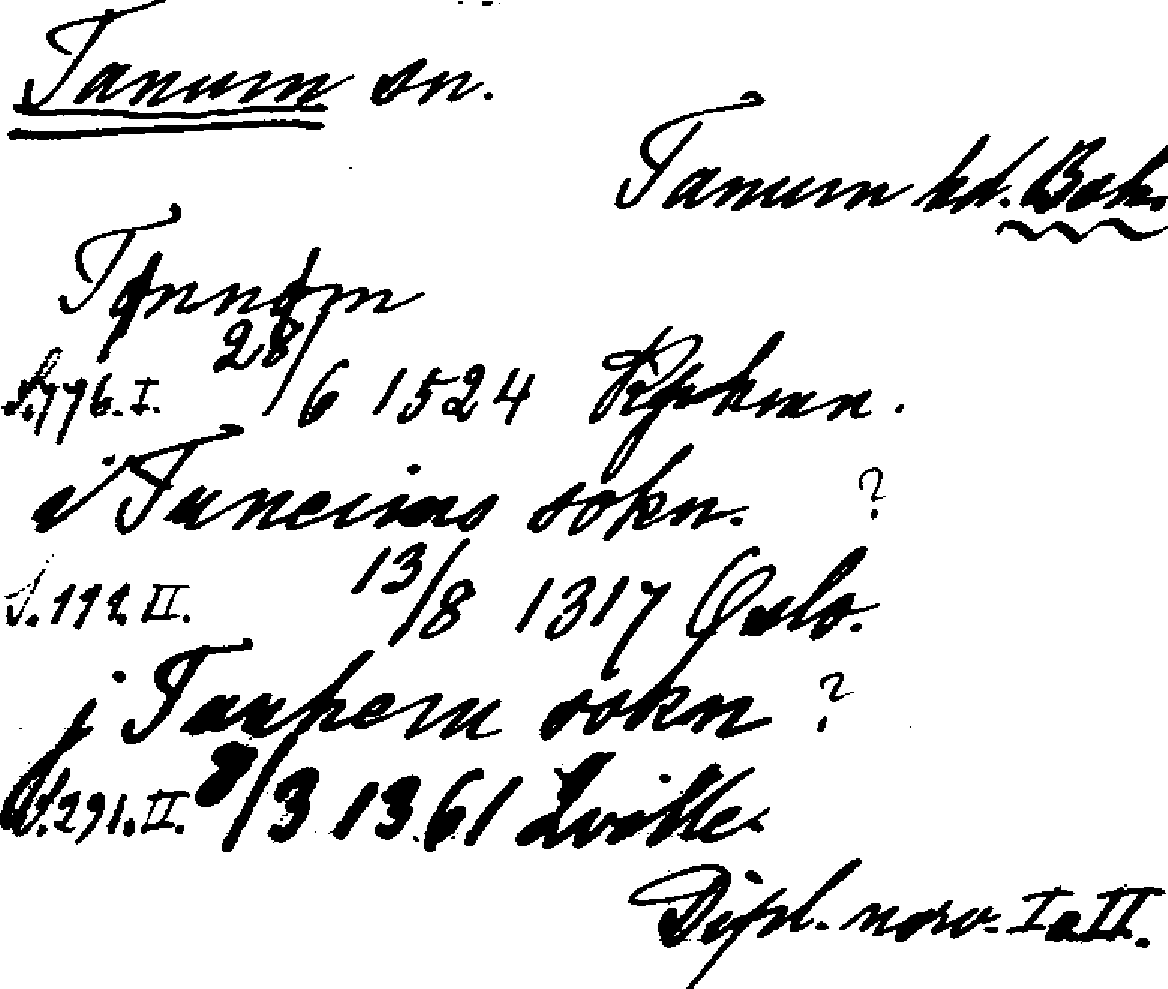 Tanum sn.
Tanum hd. Boh.
Tønnøm
S.776.I. 28/6 1524
i Tuneims sokn. ?
S.112 II. 13/8 1317 Oslo.
j Tunhem sokn ?
S.291.II. 8/3 1361
Dipl. norv. I a II.